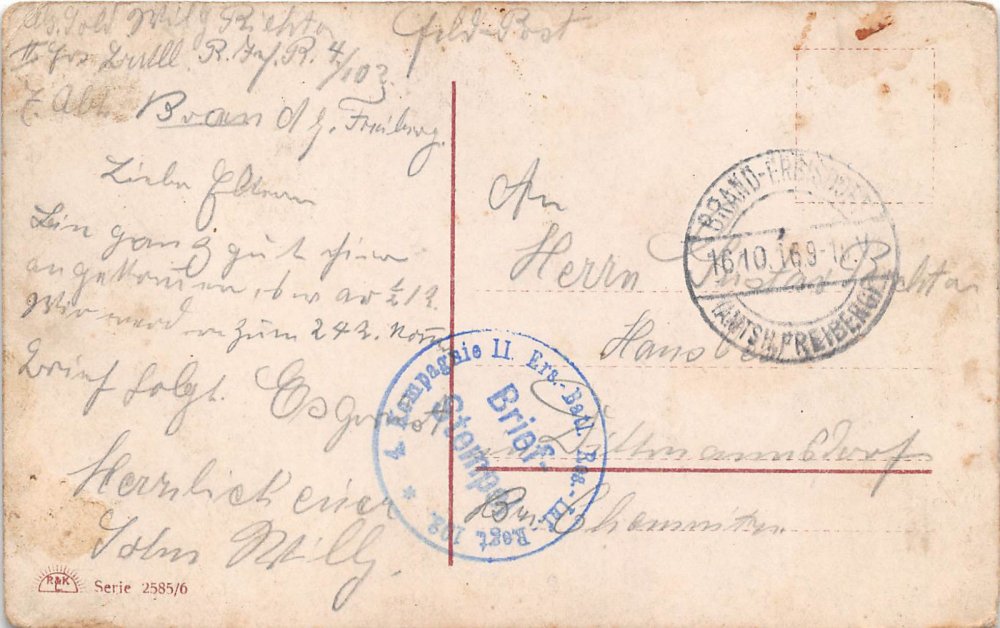 Feld-Post
Willy Richter
II. Ers. Batll. R. Inf. R. 4/103
7. Abt. Brand b. Freiberg.
Liebe Eltern
Bin ganz gut hier
angekommen, aber ½12.
Wir werden zum 242. komm
Brief folgt. Es grüßt
Herzlich euer
Sohn Willy.
An
Herrn Gustav Richter
Hausbes
Dittmannsdorf
BRAND-ERBISDORF
16.10.16 9-10 V
(AMTSH. FREIBERG)
4. Kompagnie II. Ers.-Batl. Res.-Inf.-Regt. 103.
Brief-
Stempel
R&K
L
Serie 2585/6